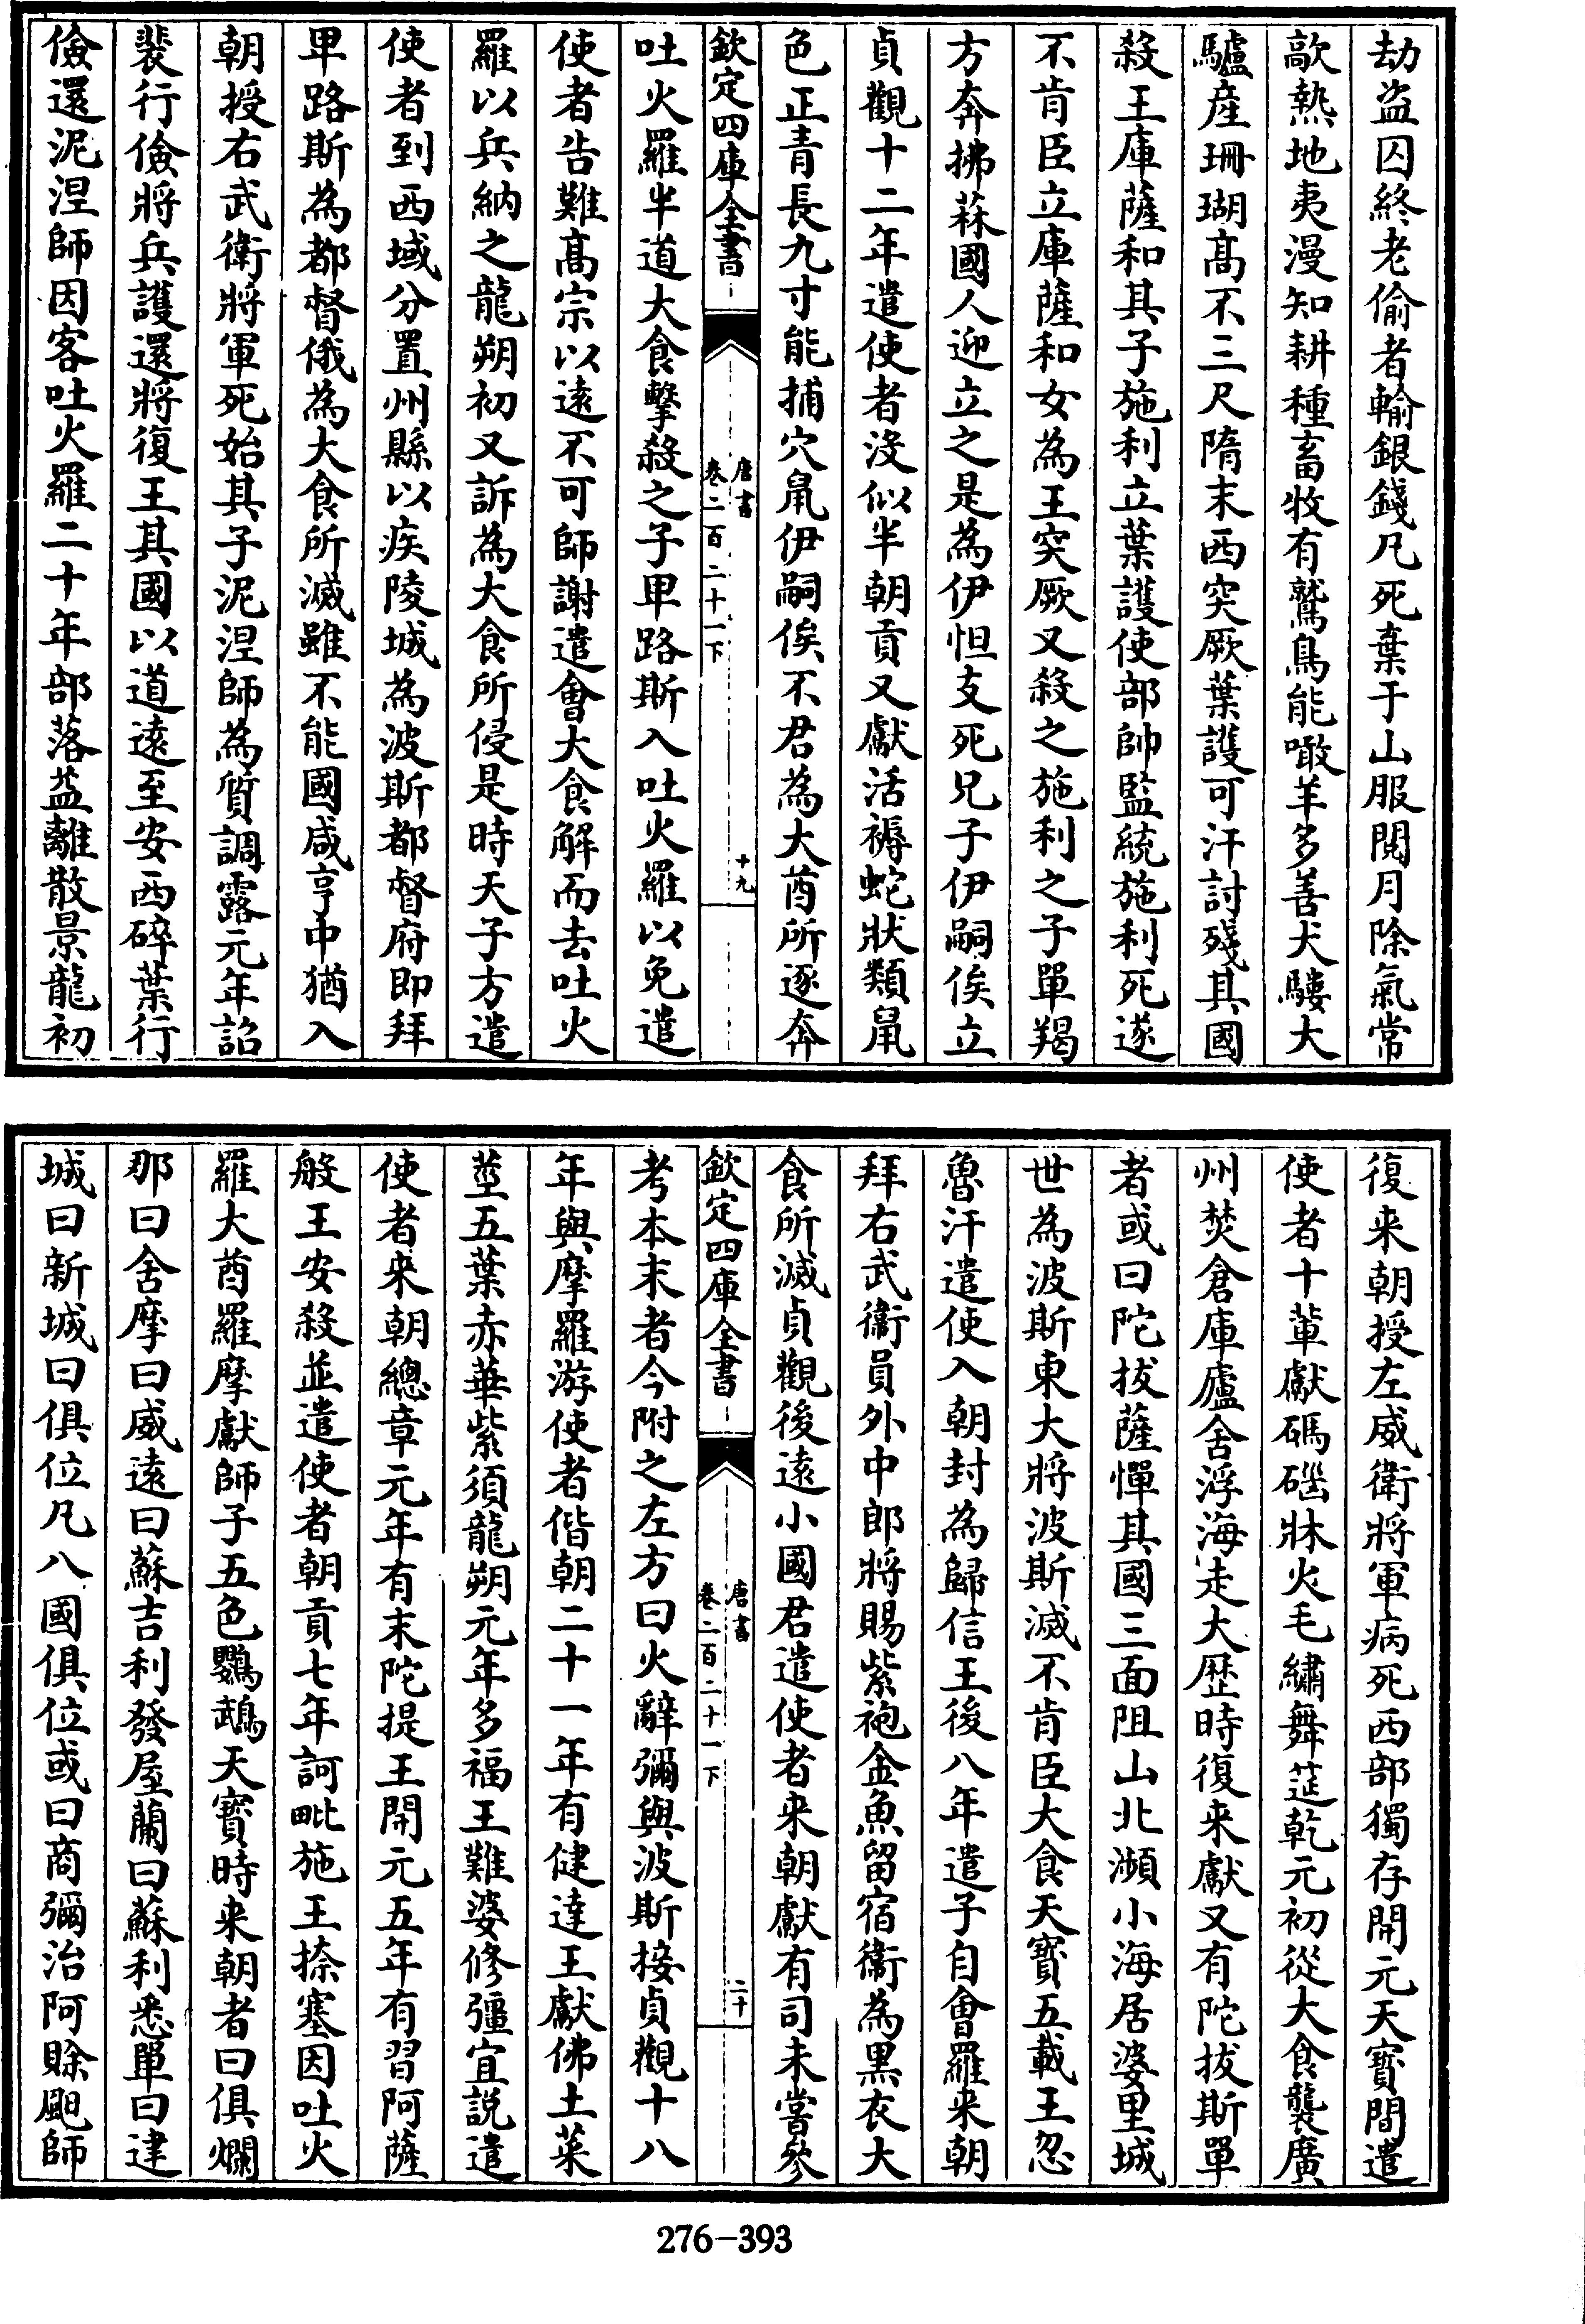 劫盗囚終老偷者輸銀錢凡死棄于山服閲月除氣常
歊熱地夷漫知耕種畜牧有鷲鳥能噉羊多善犬騾大
驢産珊瑚髙不三尺隋末西突厥葉護可汗討殘其國
殺王庫薩和其子施利立葉護使部帥監統施利死遂
不肯臣立庫薩和女為王突厥又殺之施利之子單羯
方奔拂菻國人迎立之是為伊怛支死兄子伊嗣俟立
貞觀十二年遣使者沒似半朝貢又獻活褥蛇狀類鼠
色正青長九寸能捕穴鼠伊嗣俟不君為大酋所逐奔
欽定四庫全書
唐書
卷二百二十一下
十九
吐火羅半道大食擊殺之子卑路斯入吐火羅以免遣
使者告難髙宗以遠不可師謝遣會大食解而去吐火
羅以兵納之龍朔初又訴為大食所侵是時天子方遣
使者到西域分置州縣以疾陵城為波斯都督府即拜
卑路斯為都督俄為大食所滅雖不能國咸亨中猶入
朝授右武衛將軍死始其子泥涅師為質調露元年詔
裴行儉將兵護還將復王其國以道遠至安西碎葉行
儉還泥涅師因客吐火羅二十年部落益離散景龍初
復來朝授左威衛將軍病死西部獨存開元天寳間遣
使者十輩獻碼碯牀火毛繡舞筵乾元初從大食襲廣
州焚倉庫廬舍浮海走大歴時復来獻又有陀拔斯單
者或曰陀拔薩憚其國三面阻山北瀕小海居婆里城
世為波斯東大將波斯滅不肯臣大食天寳五載王忽
魯汗遣使入朝封為歸信王後八年遣子自會羅来朝
拜右武衛員外中郎將賜紫袍金魚留宿衛為黒衣大
食所滅貞觀後遠小國君遣使者来朝獻有司未嘗參
欽定四庫全書
唐書
卷二百二十一下
二十
考本末者今附之左方曰火辭彌與波斯接貞觀十八
年與摩羅游使者偕朝二十一年有健達王獻佛土菜
莖五葉赤華紫須龍朔元年多福王難婆修彊宜説遣
使者来朝總章元年有末陀提王開元五年有習阿薩
般王安殺並遣使者朝貢七年訶毗施王捺塞因吐火
羅大酋羅摩獻師子五色鸚鵡天寳時来朝者曰俱爛
那曰舍摩曰威遠曰蘇吉利發屋蘭曰蘇利悉單曰建
城曰新城曰俱位凡八國俱位或曰商彌治阿賖䫻師
276-393